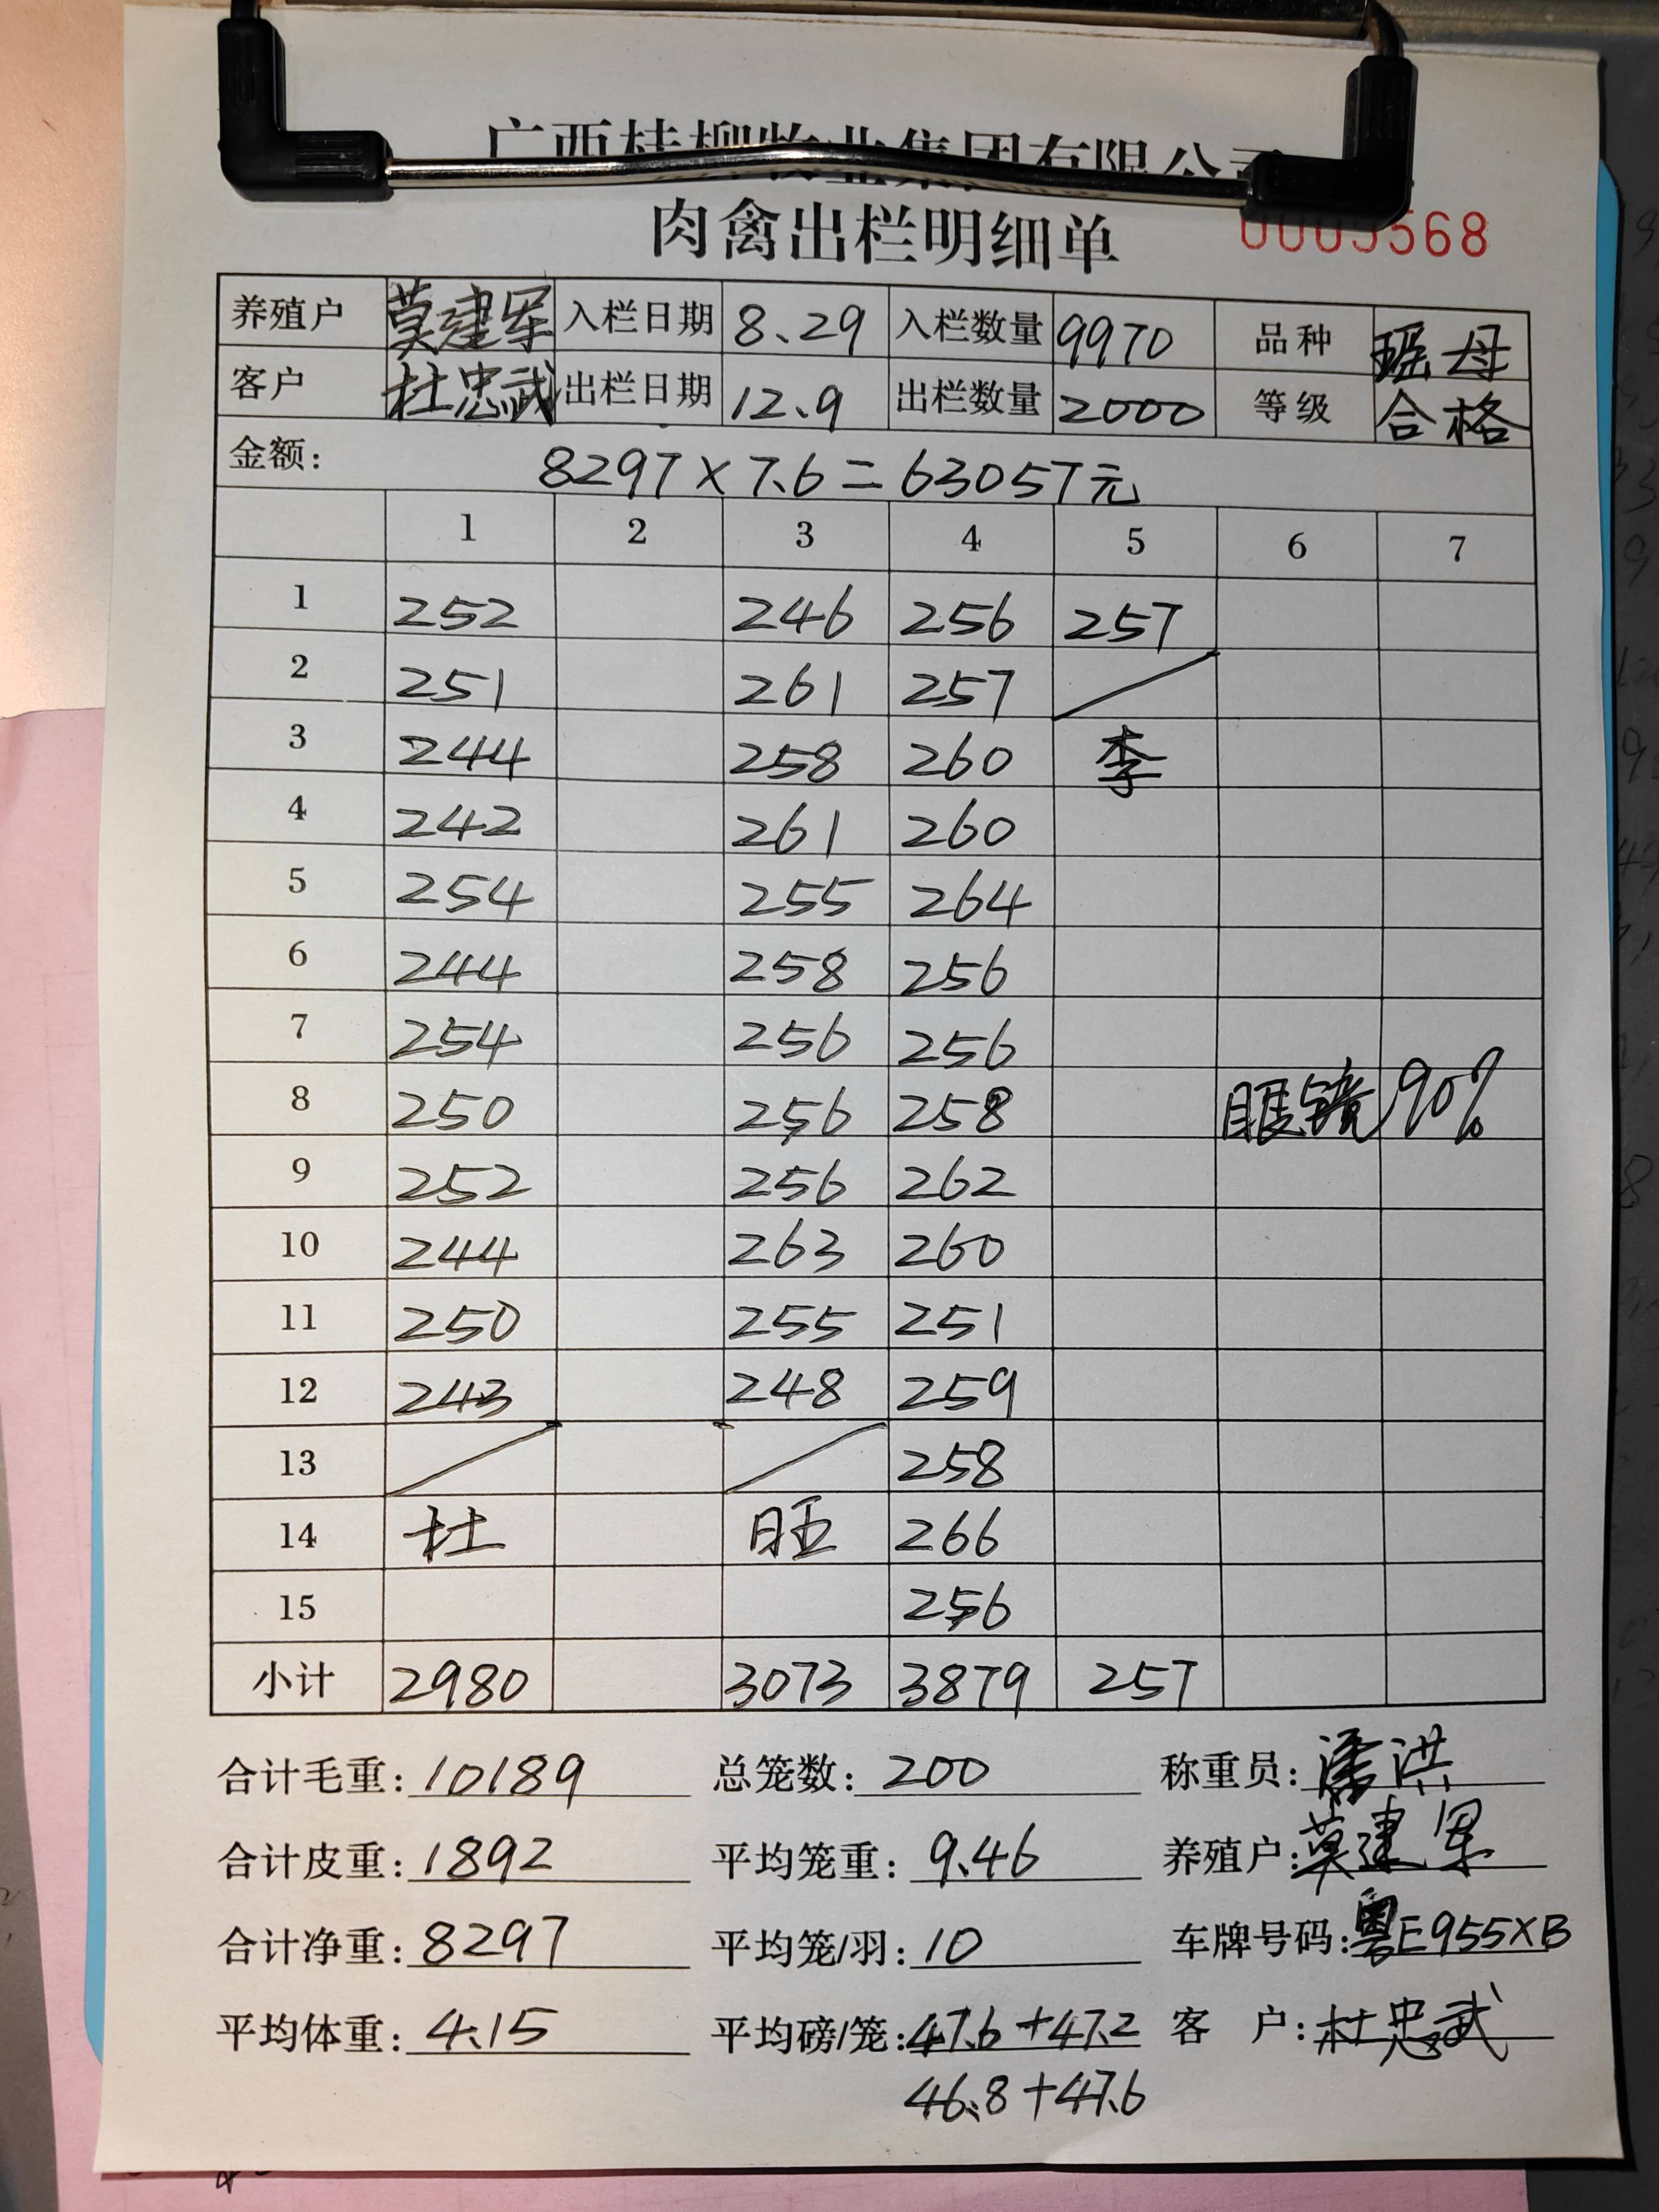 广西桂柳牧业集团有限公司
肉禽出栏明细单 0005568
养殖户 莫建军 入栏日期 8.29 入栏数量 9970 品种 瑶母
客户 杜忠武 出栏日期 12.9 出栏数量 2000 等级 合格
金额: 8297×7.6=63057元
1 2 3 4 5 6 7
1 252 246 256 257
2 251 261 257
3 244 258 260 李
4 242 261 260
5 254 255 264
6 244 258 256
7 254 256 256
8 250 256 258 眼镜90%
9 252 256 262
10 244 263 260
11 250 255 251
12 243 248 259
13 258
14 杜 旺 266
15 256
小计 2980 3073 3879 257
合计毛重: 10189 总笼数: 200 称重员: 潘洪
合计皮重: 1892 平均笼重: 9.46 养殖户: 莫建军
合计净重: 8297 平均笼/羽: 10 车牌号码: 粤E955XB
平均体重: 4.15 平均磅/笼: 47.6+47.2 客 户: 杜忠武
46.8+47.6